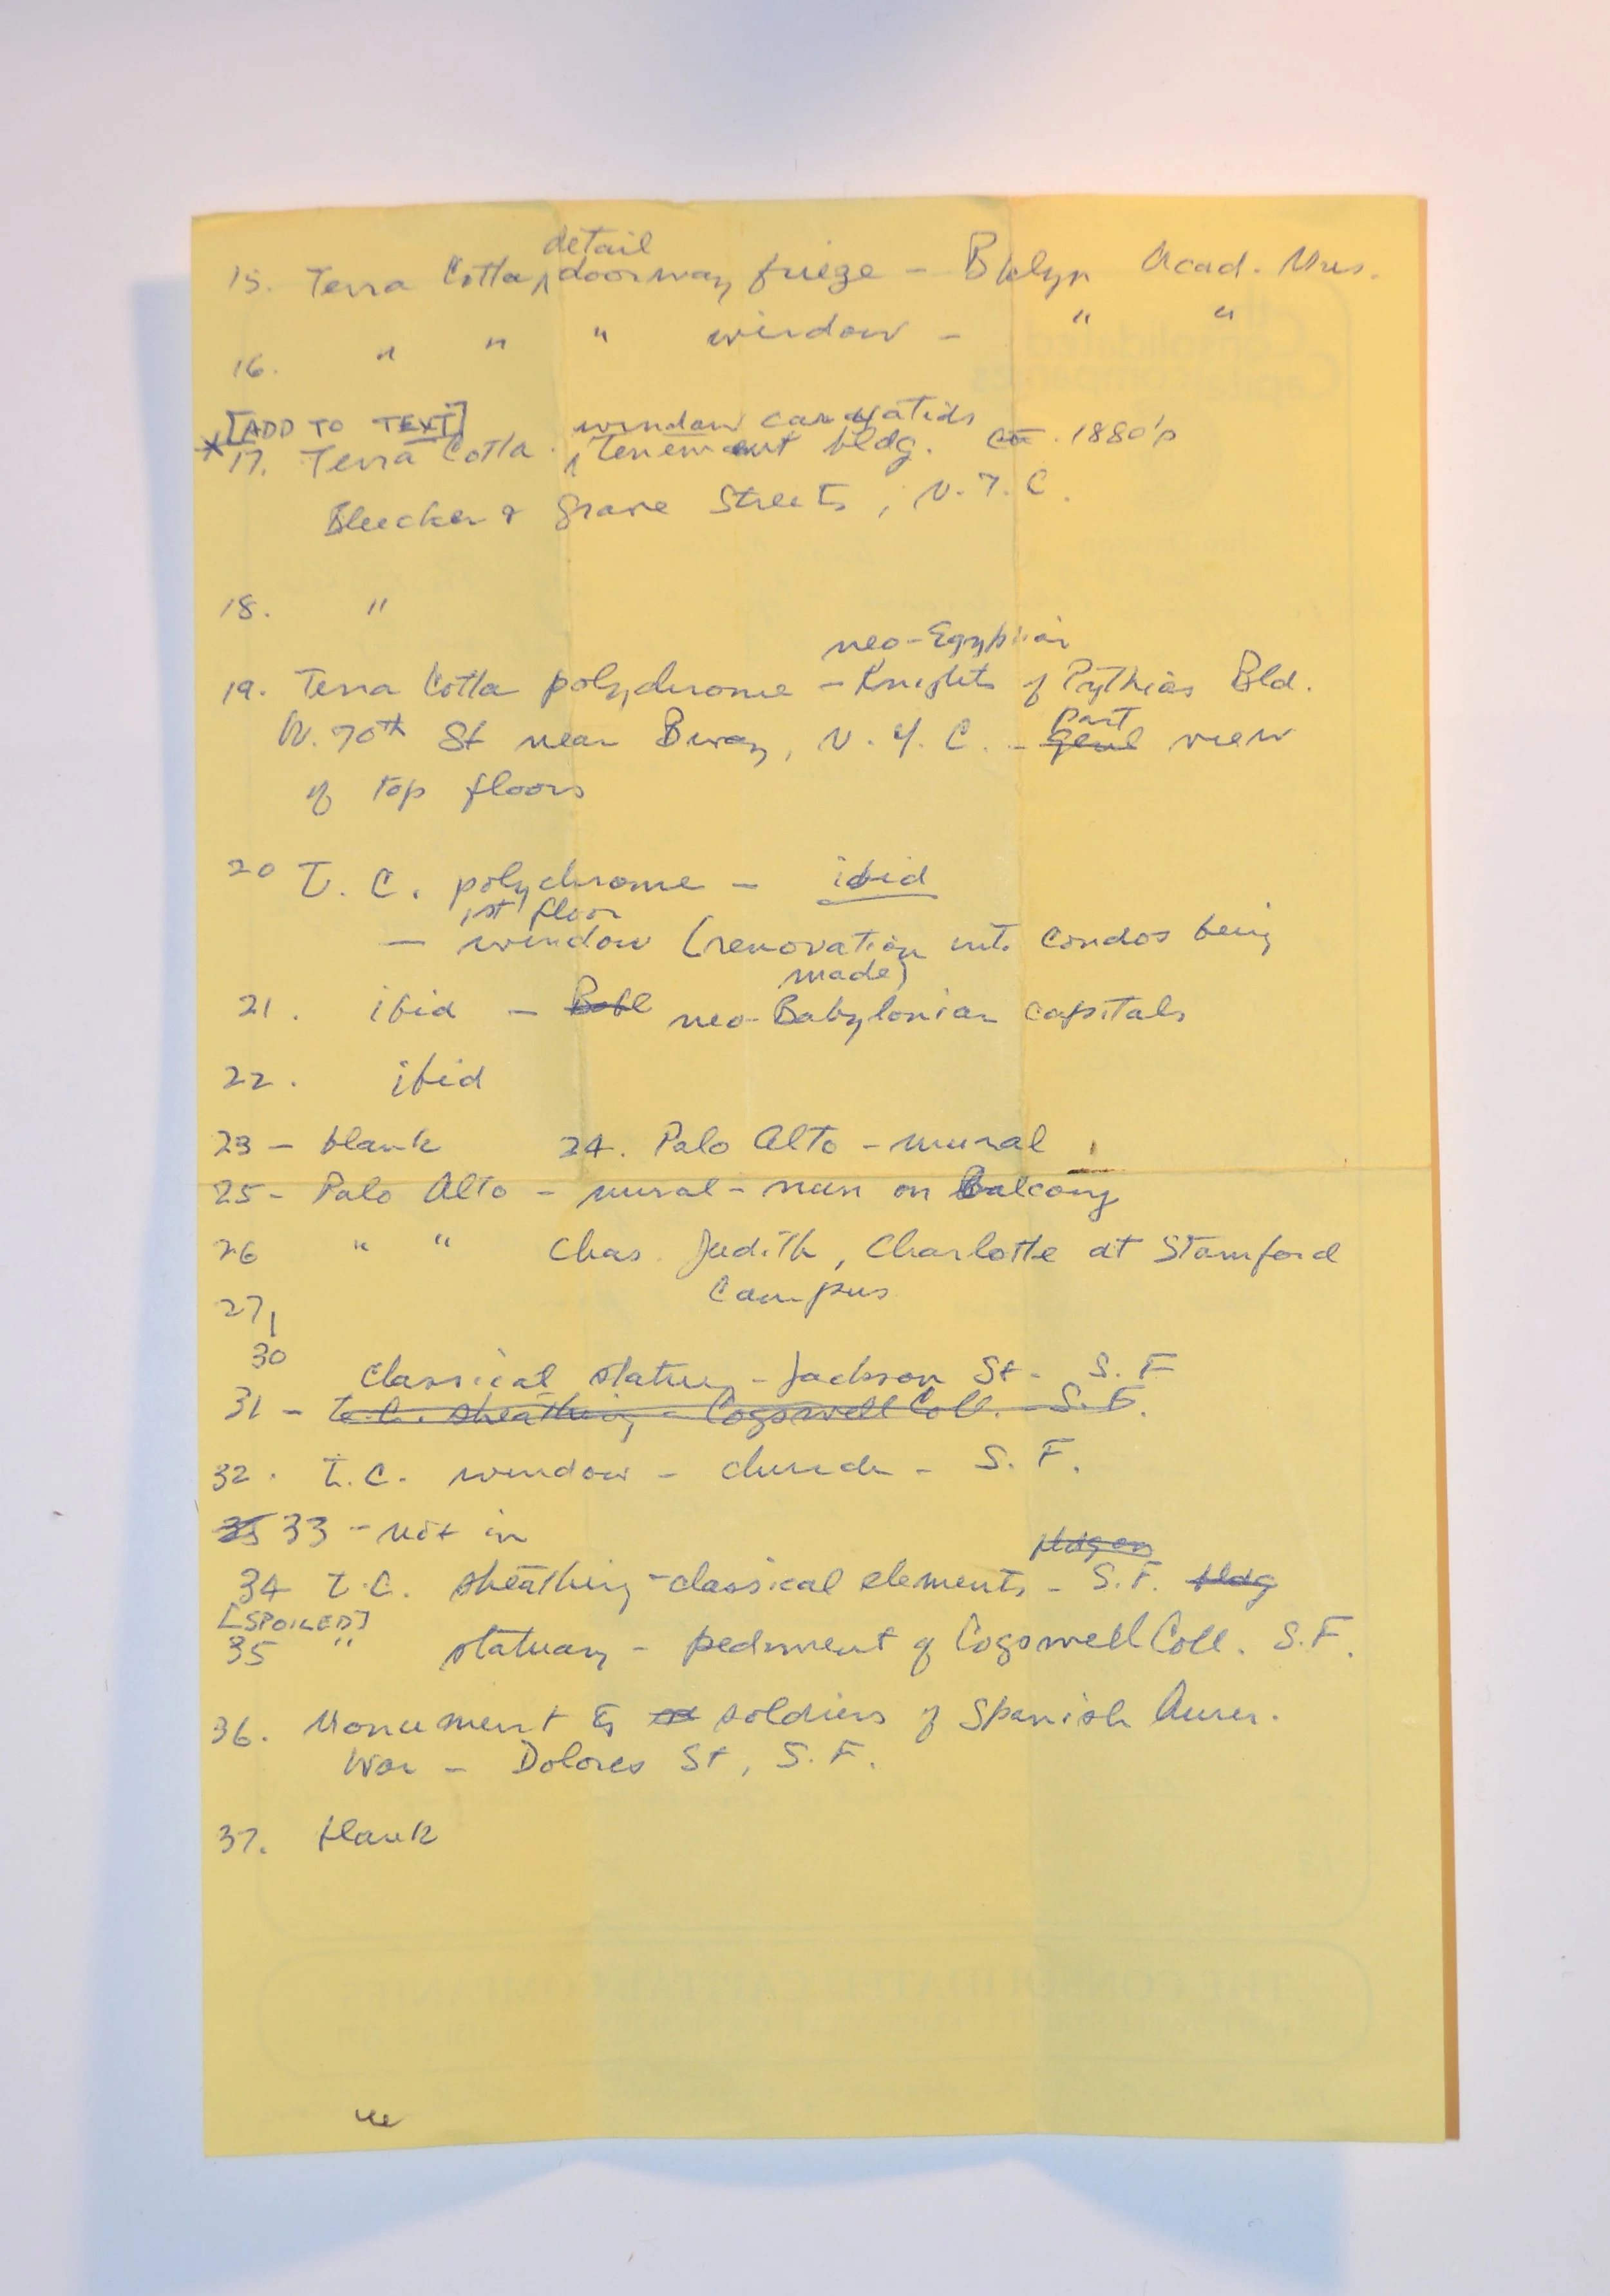 detail
15. Terra Cotta, doorway frieze - Bklyn Acad. Mus.
16. " " " window - " "
[ADD TO TEXT] window caryatids
*17. Terra Cotta tenement bldg. ca. 1880's
Bleecker & Grove Streets, N.Y.C.
18. "
neo-Egyptian
19. Terra Cotta polychrome - Knights of Pythias Bld.
part
W. 70th St near Bway, N.Y.C. - genl view
of top floors
20 T.C. polychrome - ibid
1st floor
- window (renovation into condos being
made)
21. ibid - Babl neo-Babylonian capitals
22. ibid
23 - blank 24. Palo Alto - mural
25 - Palo Alto - mural - man on Balcony
26 " " Chas. Judith, Charlotte at Stamford
Campus
27,
30
classical statuey - Jackson St - S.F
31 - t.c. sheathing - Cogswell Coll. - S.F.
32. T.C. window - church - S.F.
35 33 - not in
bldg on
34 t.c. sheathing - classical elements - S.F. bldg
[SPOILED]
35 " statuary - pediment of Cogswell Coll. S.F.
36. Monument to soldiers of Spanish Amer.
War - Dolores St, S.F.
37. blank